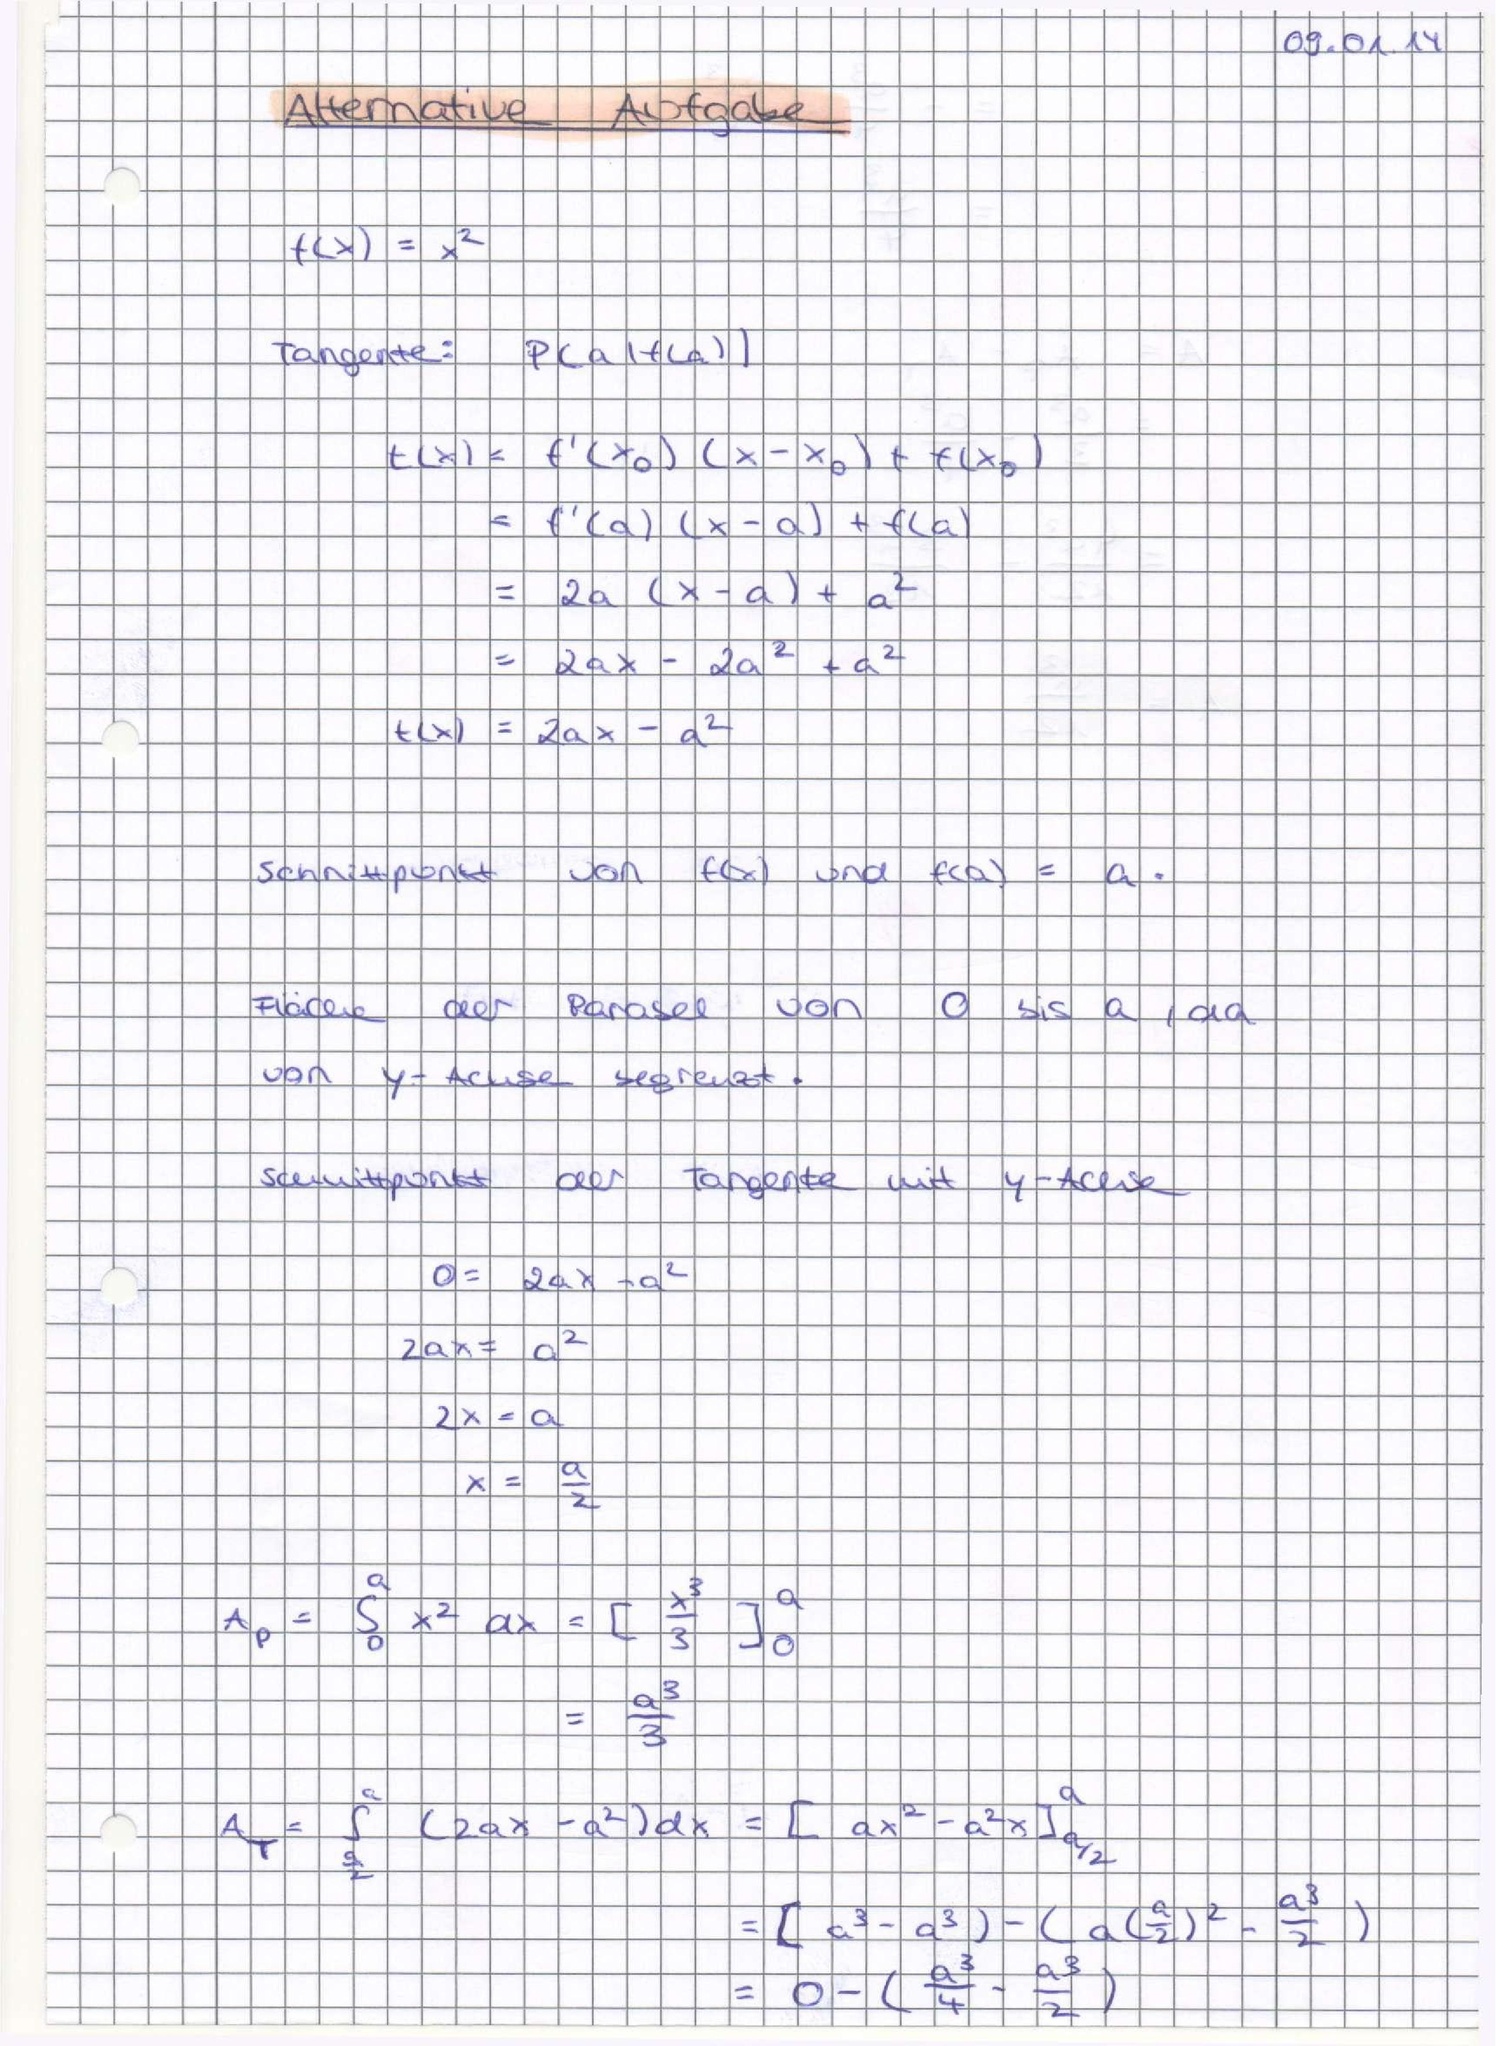 09.01.14
Alternative Aufgabe
f(x) = x²
Tangente: P(a|f(a))
t(x) = f'(x₀) (x-x₀) + f(x₀)
= f'(a) (x-a) + f(a)
= 2a (x-a) + a²
= 2ax - 2a² + a²
t(x) = 2ax - a²
Schnittpunkt von f(x) und f(a) = a.
Fläche der Parabel von 0 bis a, da
von y-Achse begrenzt.
Schnittpunkt der Tangente mit y-Achse
0 = 2ax - a²
2ax = a²
2x = a
x = a/2
A_P = ∫₀^a x² dx = [ x³/3 ]₀^a
= a³/3
A_T = ∫_{a/2}^a (2ax - a²) dx = [ ax² - a²x ]_{a/2}^a
= [ a³ - a³ ) - ( a(a/2)² - a³/2 )
= 0 - ( a³/4 - a³/2 )